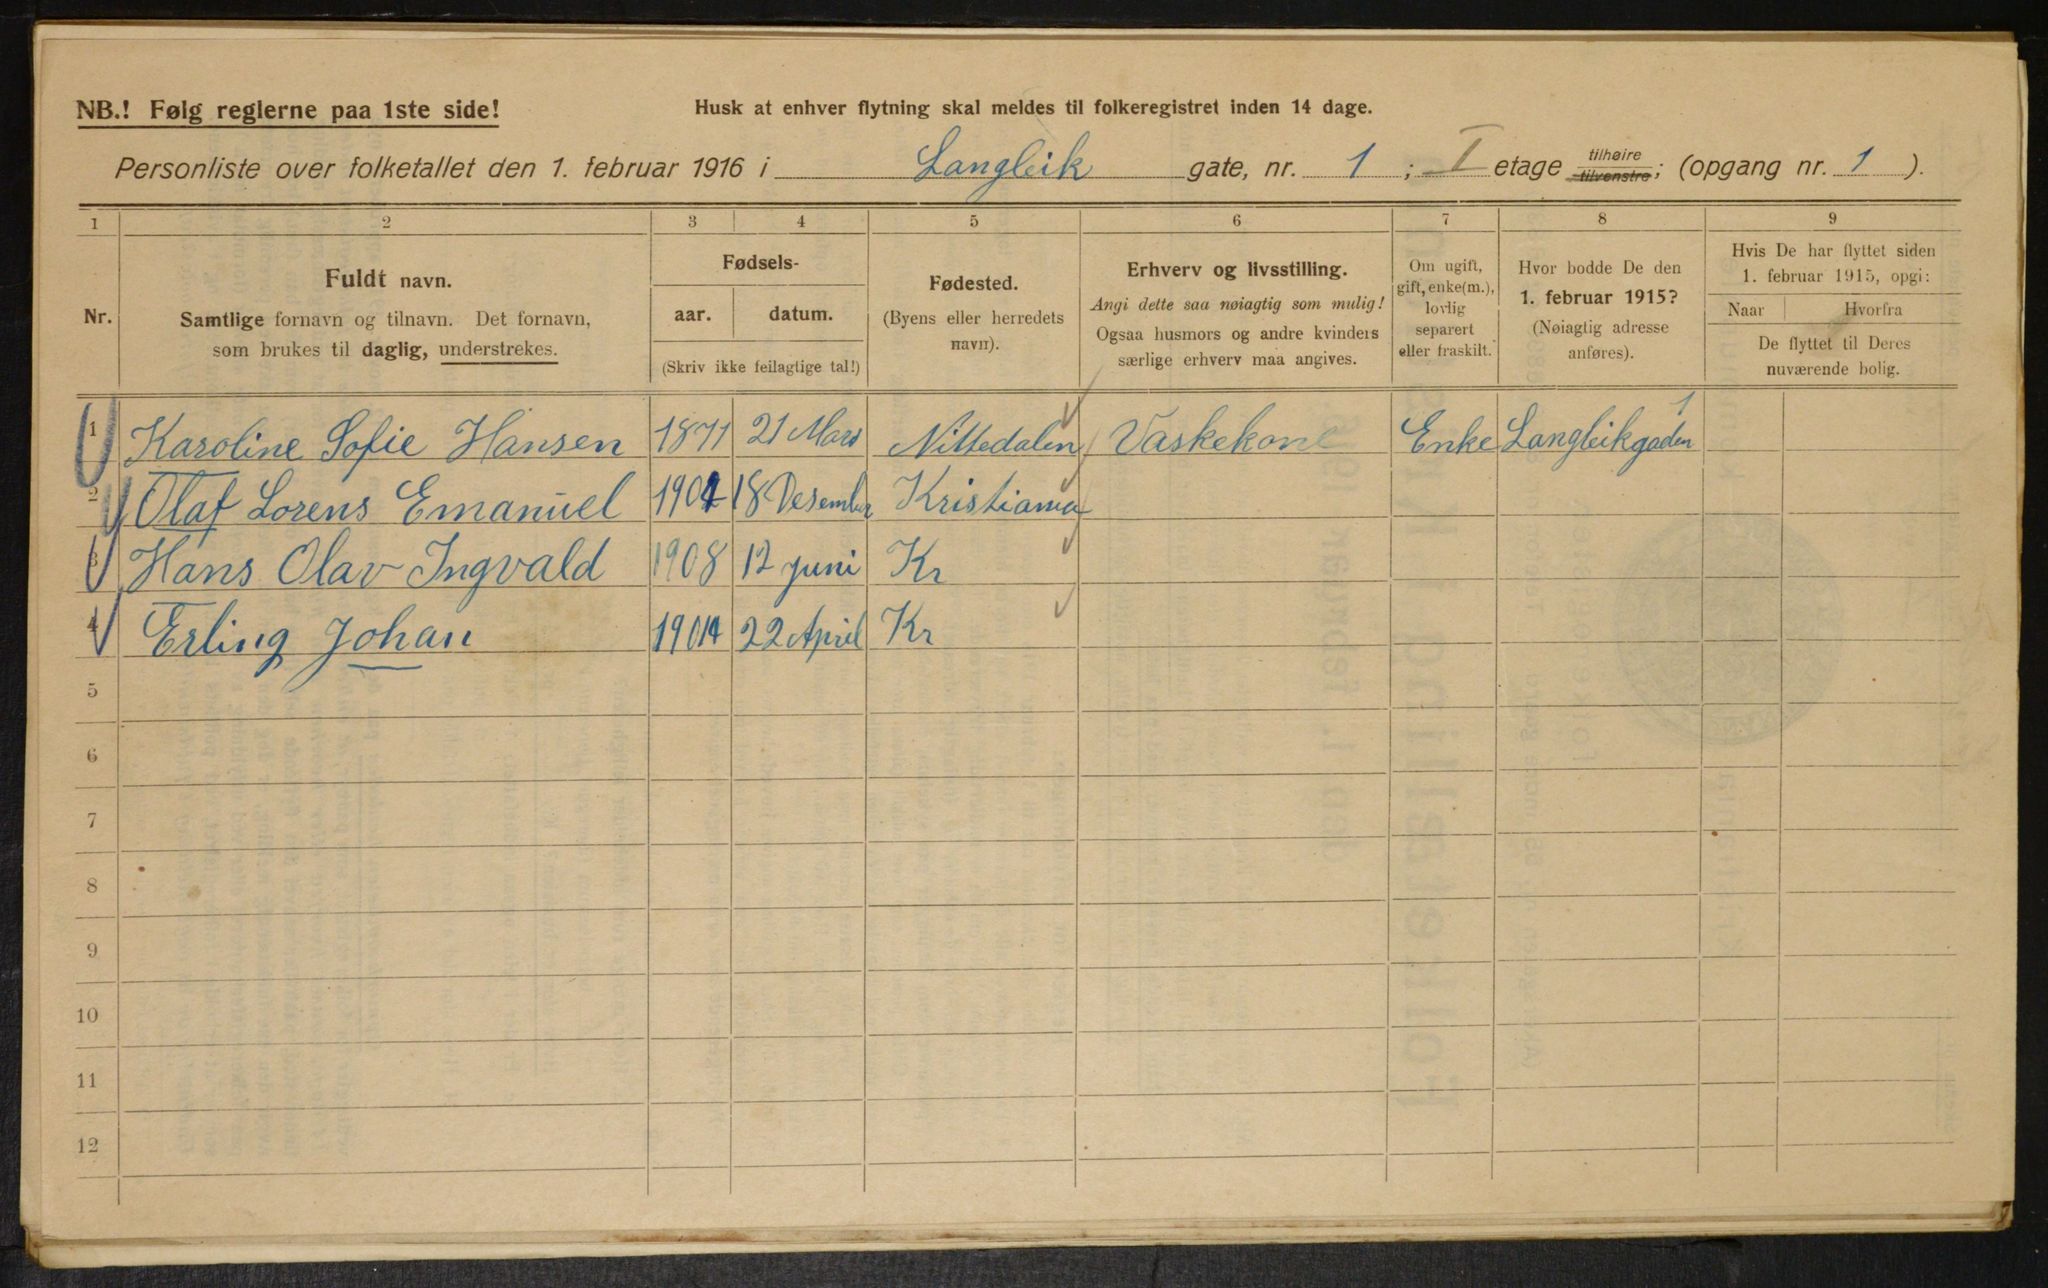 NB.! Følg reglerne paa 1ste side!
Husk at enhver flytning skal meldes til folkeregistret inden 14 dage.
Personliste over folketallet den 1. februar 1916 i Langleik gate, nr. 1; I etage tilhøire tilvenstre; (opgang nr. 1).
1 2 3 4 5 6 7 8 9
Nr.
Fuldt navn.
Samtlige fornavn og tilnavn. Det fornavn,
som brukes til daglig, understrekes.
Fødsels-
aar. datum.
(Skriv ikke feilagtige tal!)
Fødested.
(Byens eller herredets
navn).
Erhverv og livsstilling.
Angi dette saa nøiagtig som mulig!
Ogsaa husmors og andre kvinders
særlige erhverv maa angives.
Om ugift,
gift, enke(m.),
lovlig
separert
eller fraskilt.
Hvor bodde De den
1. februar 1915?
(Nøiagtig adresse
anføres).
Hvis De har flyttet siden
1. februar 1915, opgi:
Naar Hvorfra
De flyttet til Deres
nuværende bolig.
1 Karoline Sofie Hansen 1871 21 Mars Nittedalen Vaskekone Enke Langleikgaden 1
2 Olaf Lorens Emanuel 18 Desember Kristiania
3 Hans Olav Ingvald 1908 12 juni Kr
4 Erling Johan 22 April Kr
5
6
7
8
9
10
11
12